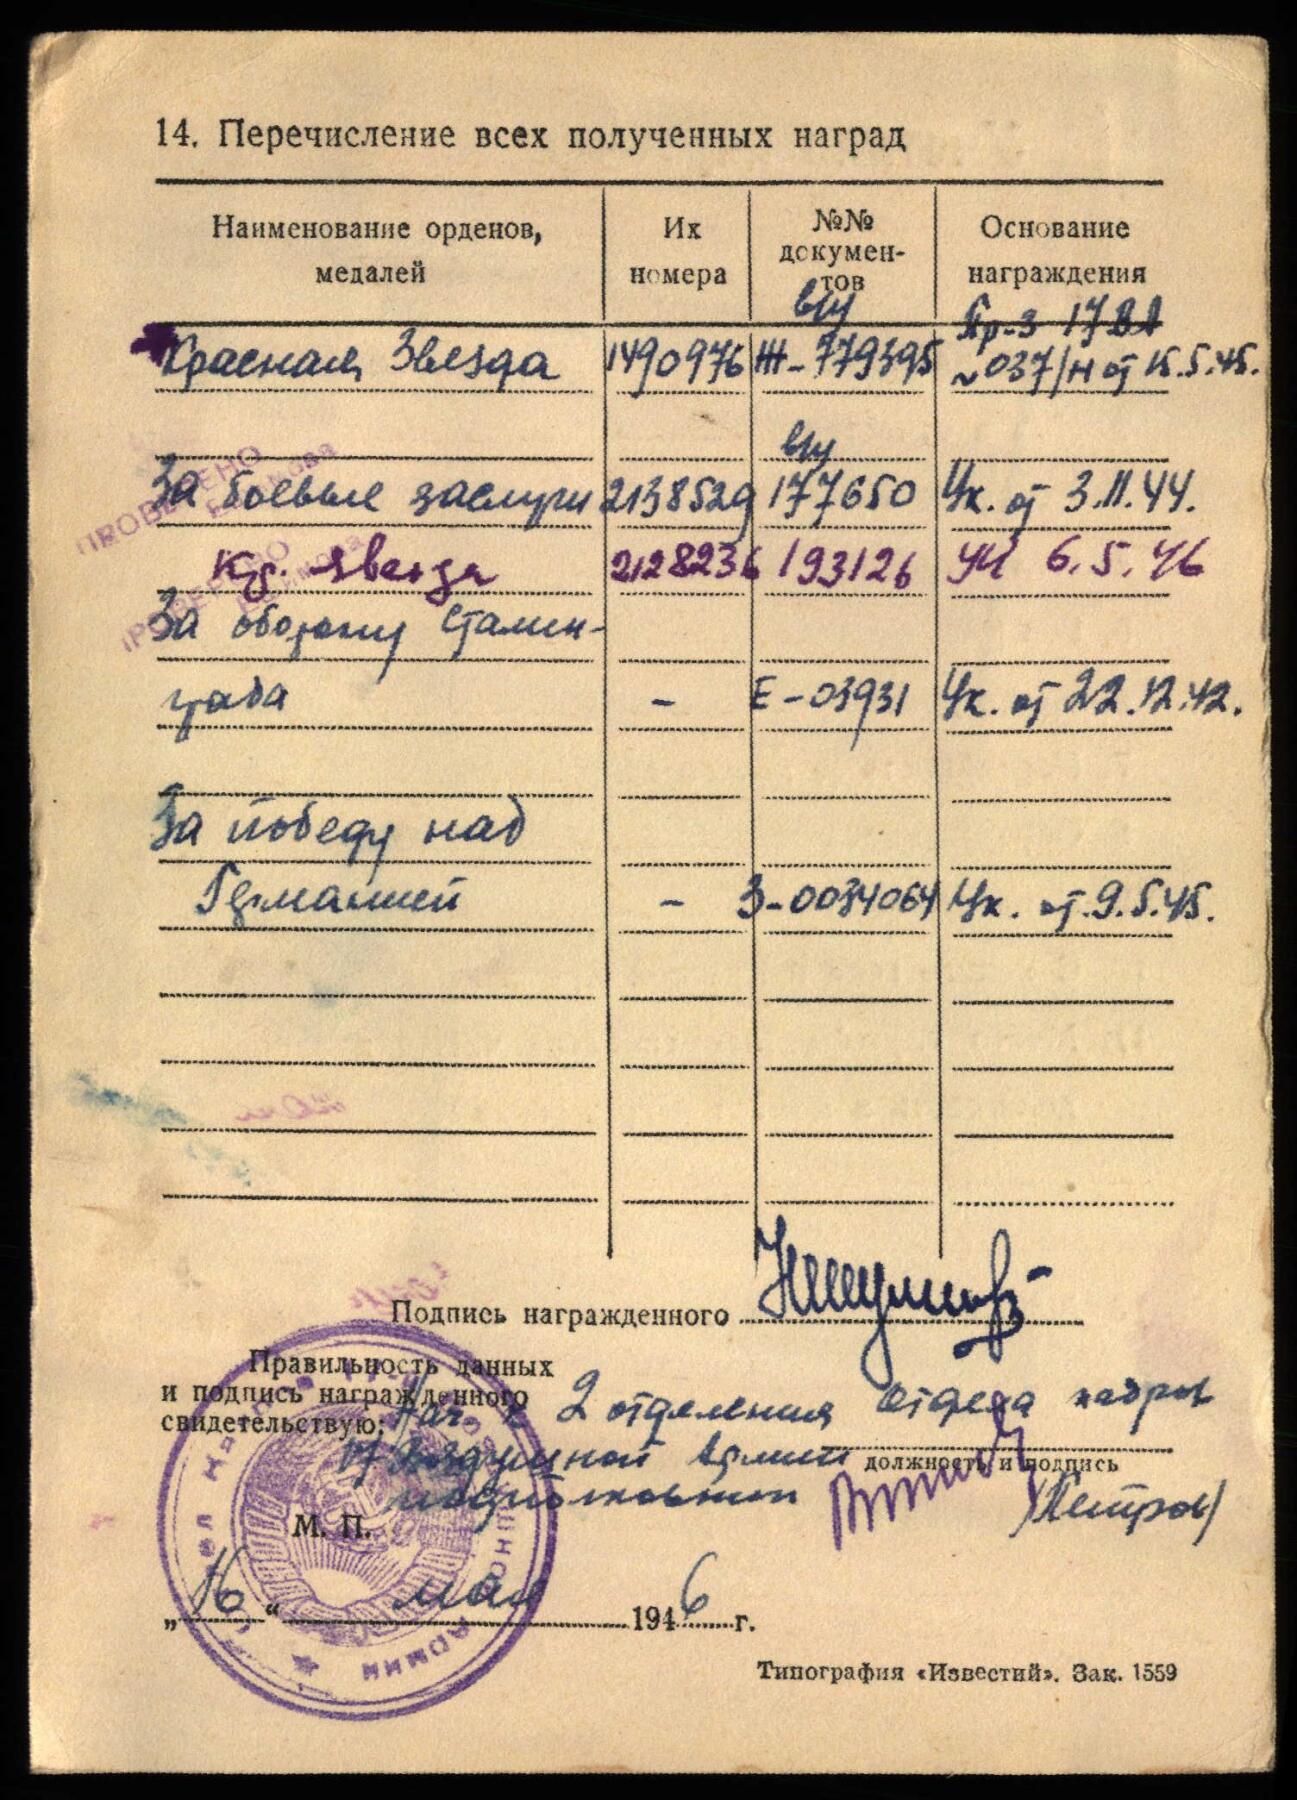 14. Перечисление всех полученных наград
Наименование орденов, медалей
Их номера
№№ докумен-тов
Основание награждения
в/у Пр-з 17 ВА
Красная Звезда 1490976 Ж-779395 №037/н от 15.5.45.
в/у
За боевые заслуги 2138529 177650 Ук. от 3.11.44.
Кр. Звезда 2128236 193126 УК 6.5.46
За оборону Сталин-
града - Е-03931 Ук. от 22.12.42.
За победу над
Германией - З-0034064 Ук. от 9.5.45.
ПРОВЕРЕНО
ПРОВЕРЕНО
Подпись награжденного
Правильность данных
и подпись награжденного
свидетельствую: Нач-к 2 отделения отдела кадров
17 Воздушной Армии
должность и подпись
подполковник (Петров)
М. П.
„16“ мая 1946 г.
Типография «Известий». Зак. 1559